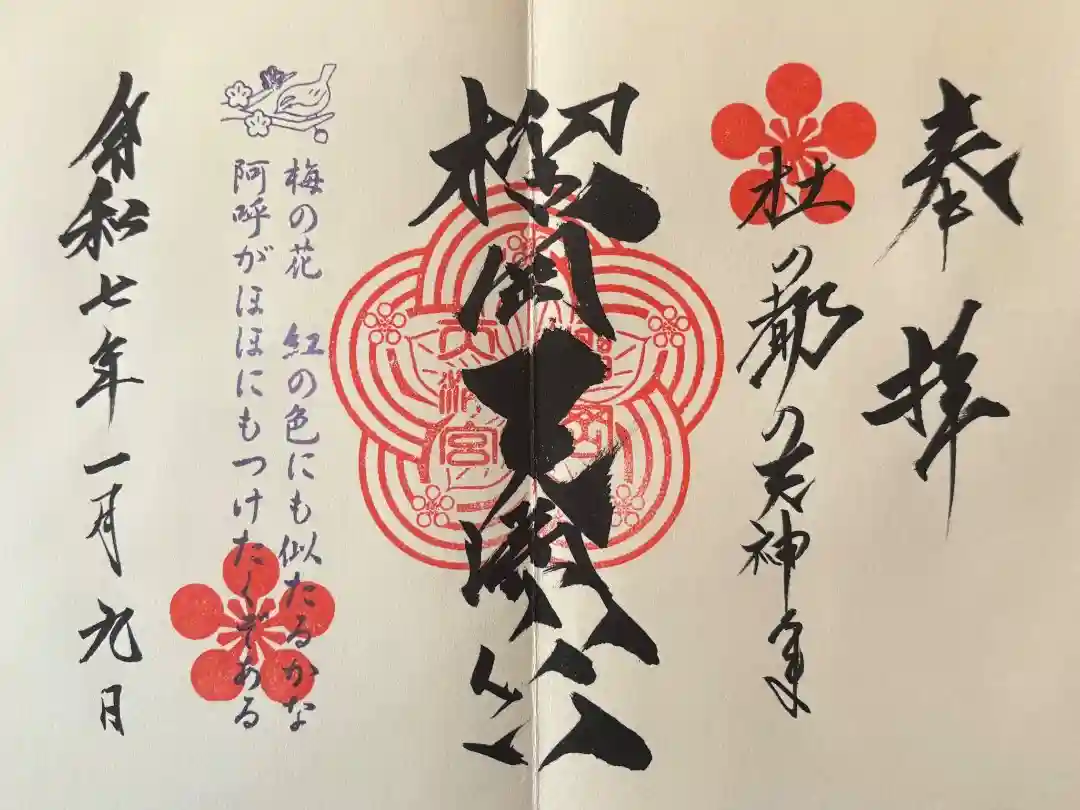 奉拝
杜の都の天神さま
榴岡天満宮
榴岡
天満宮
梅の花 紅の色にも似たるかな
阿呼がほほにもつけたくぞある
令和七年一月 日